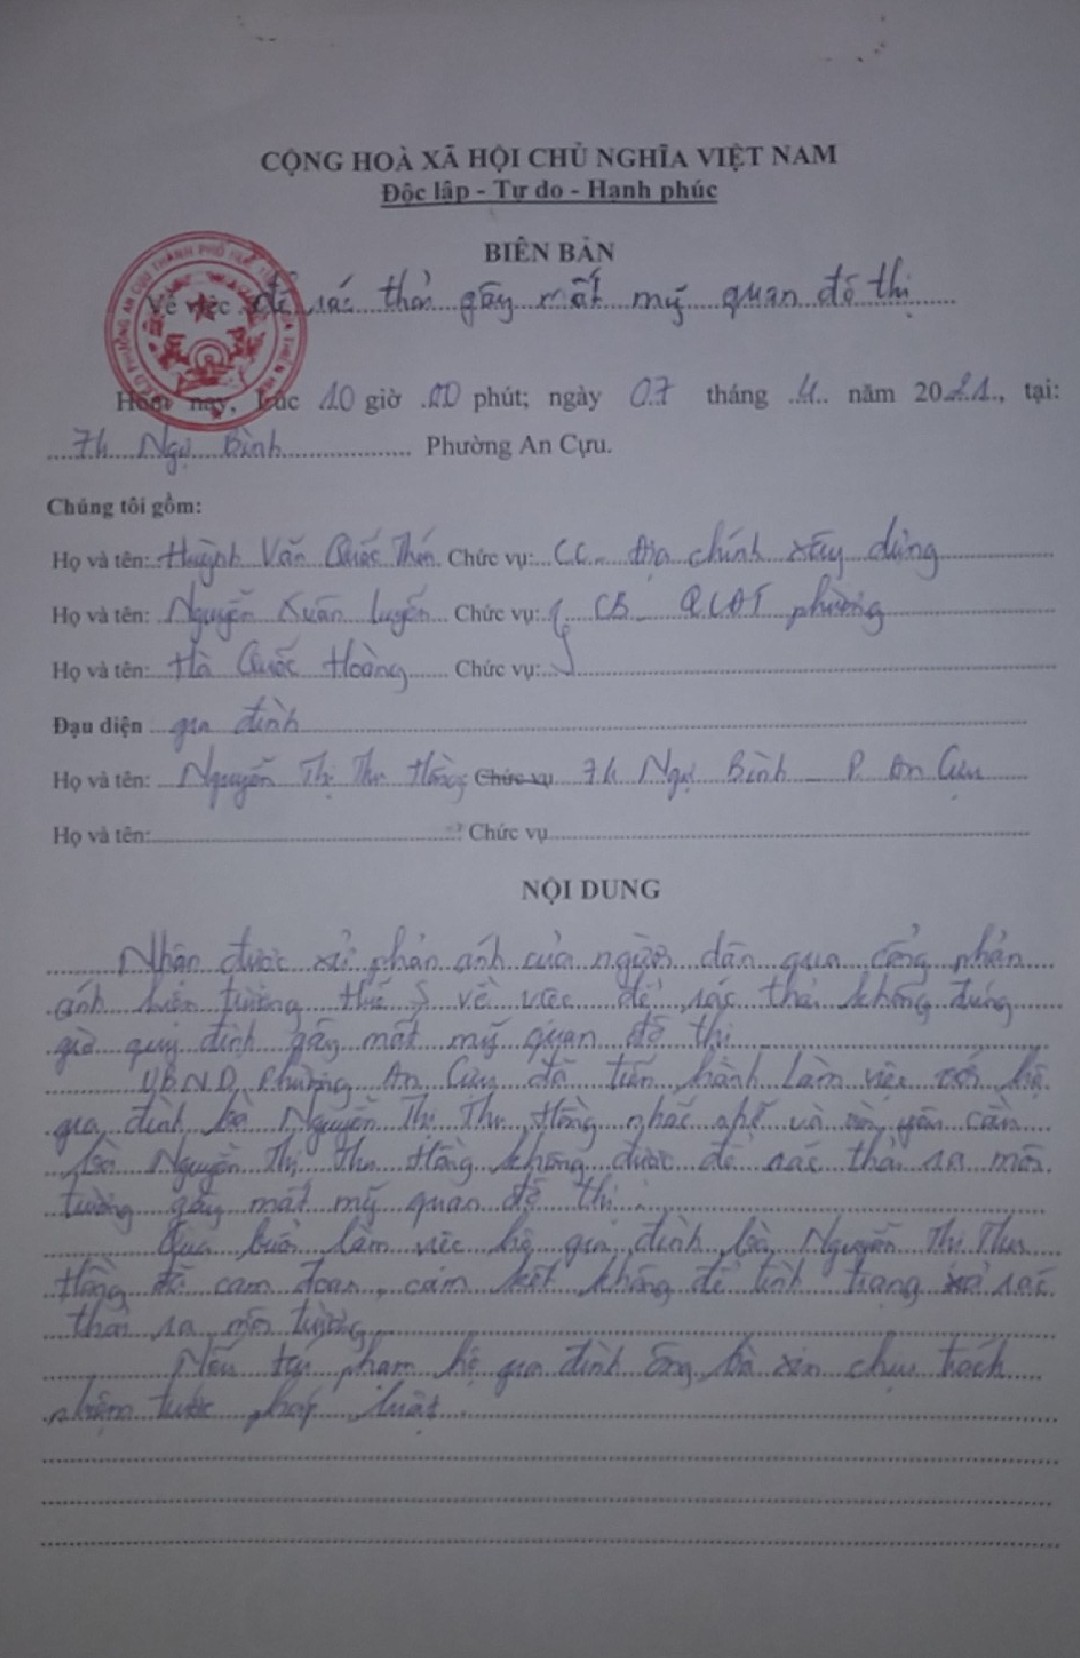 CỘNG HOÀ XÃ HỘI CHỦ NGHĨA VIỆT NAM
Độc lập - Tự do - Hạnh phúc
BIÊN BẢN
Về việc để rác thải gây mất mỹ quan đô thị
Hôm nay, lúc 10 giờ 00 phút; ngày 07 tháng 4 năm 2021, tại:
74 Ngự Bình Phường An Cựu.
Chúng tôi gồm:
Họ và tên: Huỳnh Văn Quốc Chức vụ: CC- Địa chính xây dựng
Họ và tên: Nguyễn Xuân Luyến Chức vụ: CB QLĐT phường
Họ và tên: Hà Quốc Hoàng Chức vụ:
Đạu diện gia đình
Họ và tên: Nguyễn Thị Thu Hồng Chức vụ 74 Ngự Bình - P. An Cựu
Họ và tên: Chức vụ
NỘI DUNG
Nhận được phản ánh của người dân qua cổng phản
ánh hiện trường Huế S về việc để rác thải không đúng
giờ quy định gây mất mỹ quan đô thị
UBND Phường An Cựu đã tiến hành làm việc với hộ
gia đình bà Nguyễn Thị Thu Hồng nhắc nhở và yêu cầu
bà Nguyễn Thị Thu Hồng không được để rác thải ra môi
trường gây mất mỹ quan đô thị.
Qua buổi làm việc hộ gia đình bà Nguyễn Thị Thu
Hồng đã cam đoan, cam kết không để tình trạng xả rác
thải ra môi trường
Nếu tái phạm hộ gia đình ông bà xin chịu trách
nhiệm trước pháp luật.